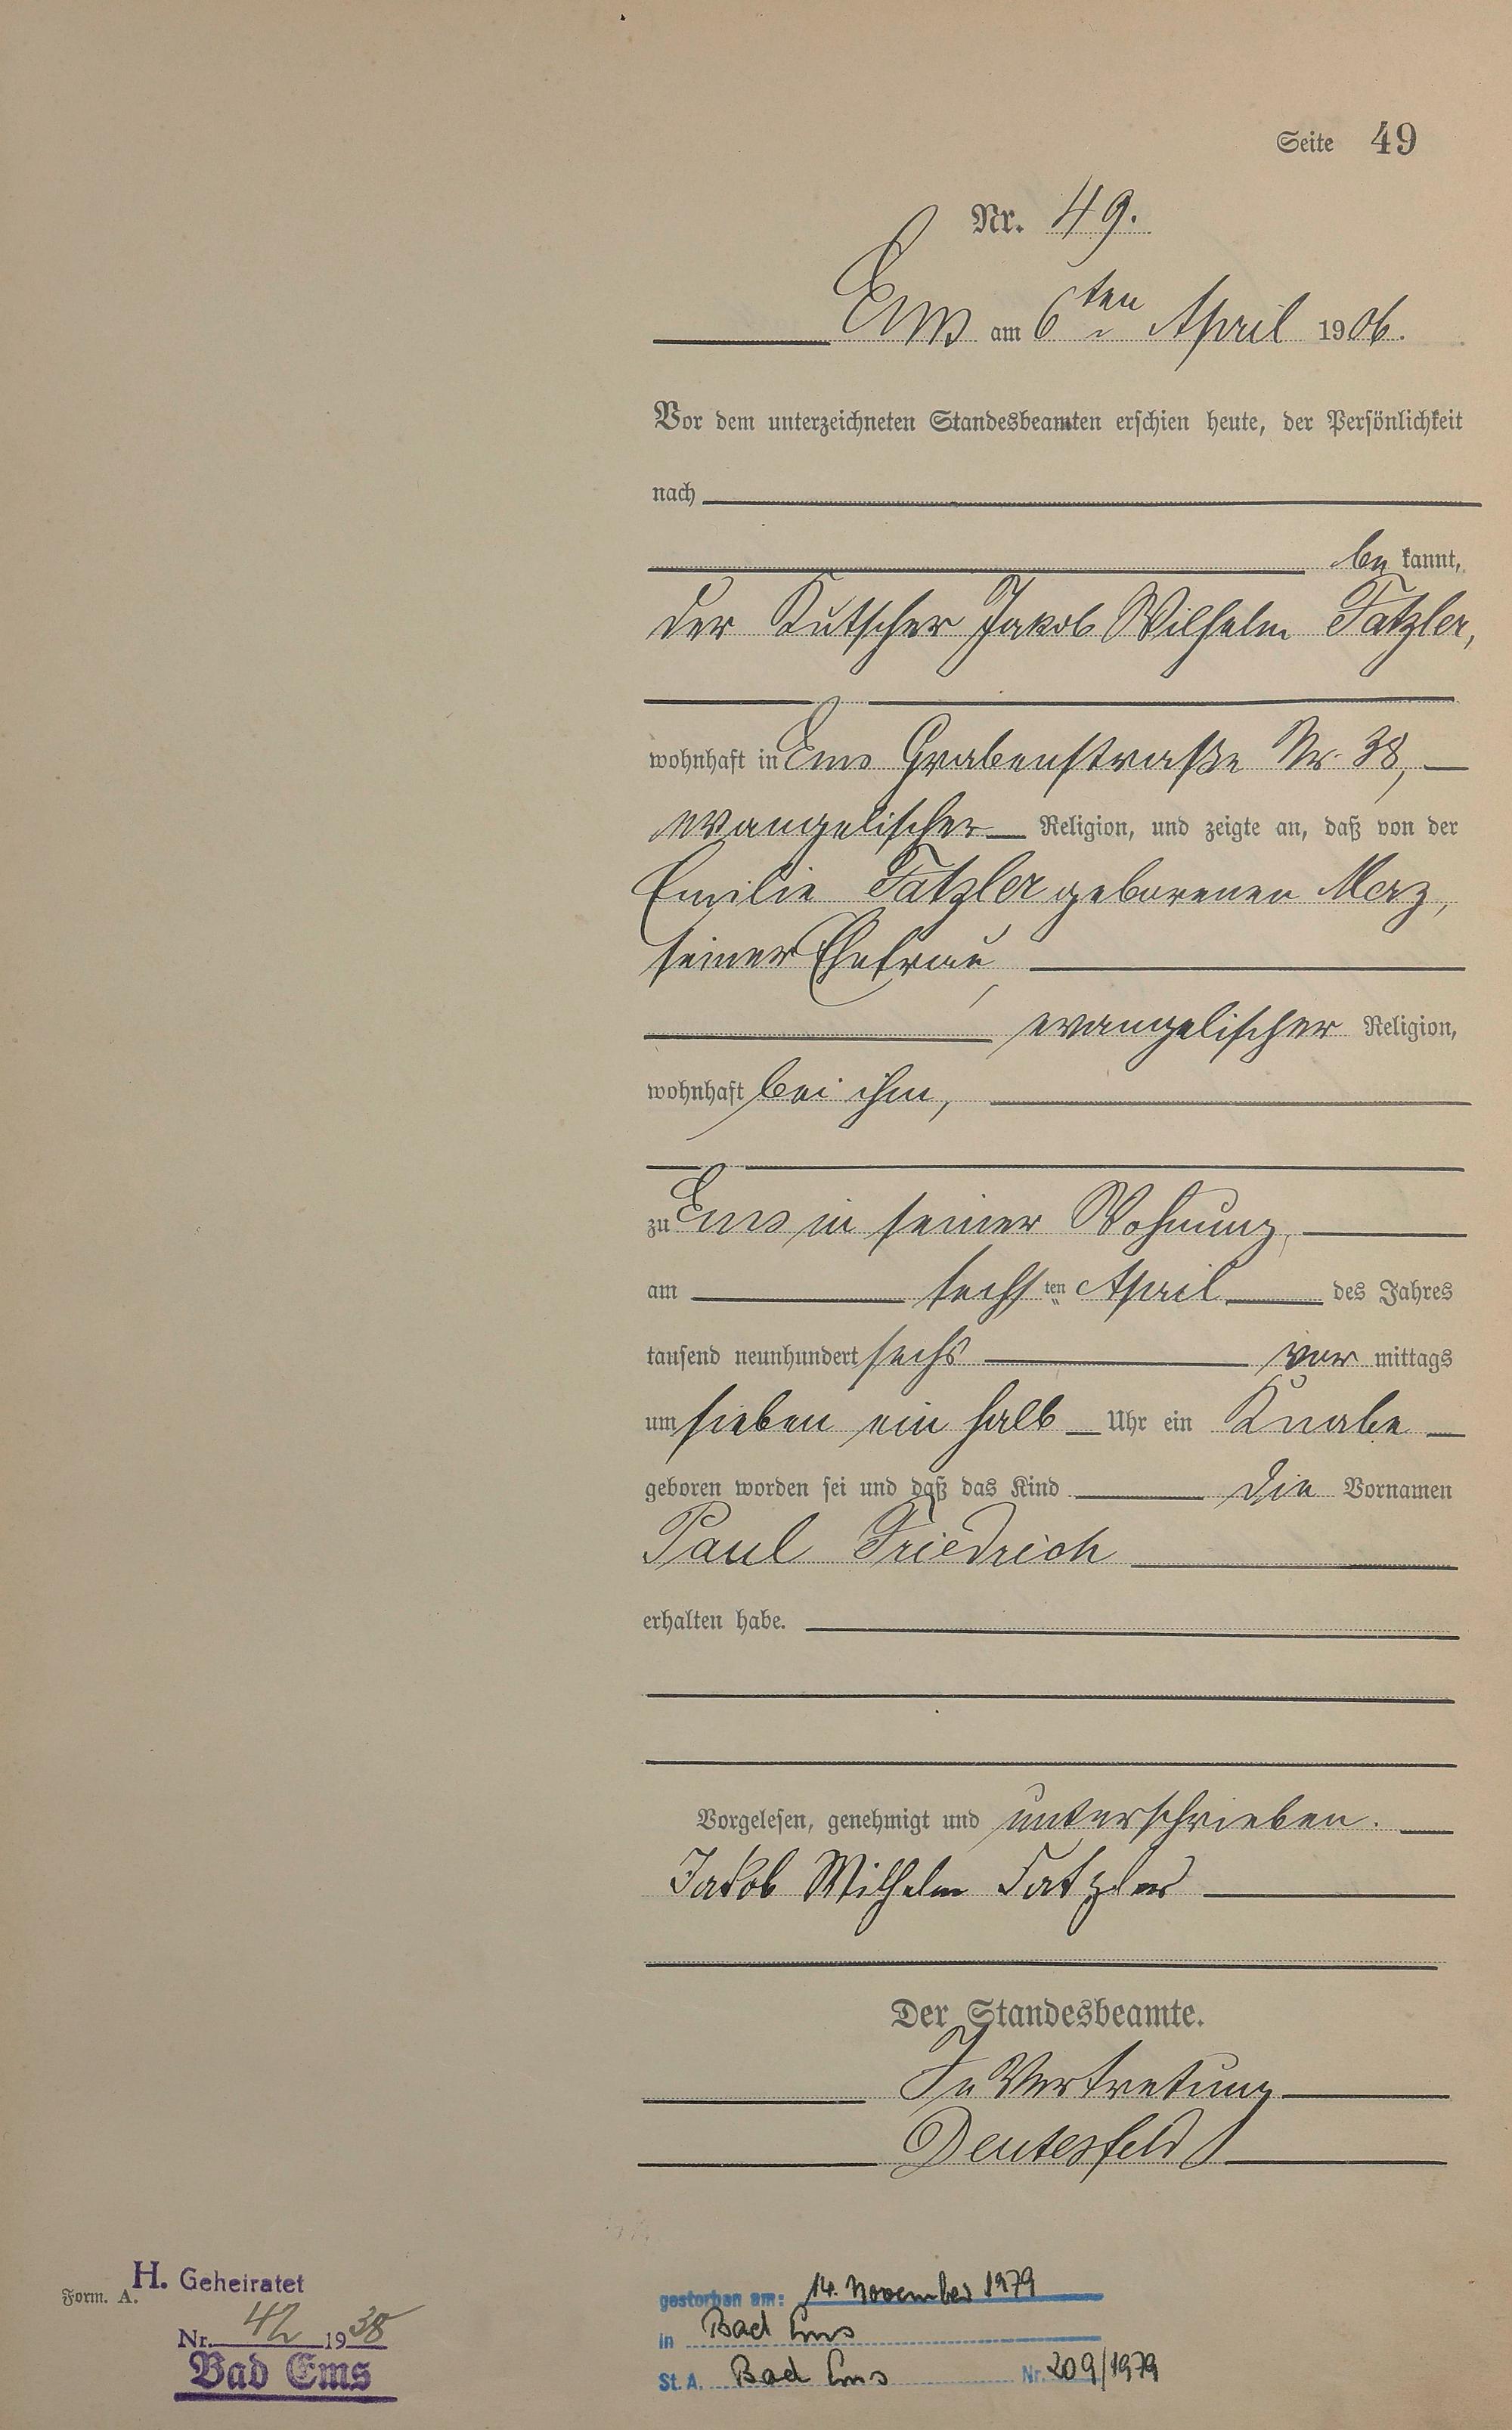 Seite 49
Nr. 49.
Ems am 6ten April 1906.
Vor dem unterzeichneten Standesbeamten erschien heute, der Persönlichkeit
nach
be kannt,
der Kutscher Jakob Wilhelm Fatzler,
wohnhaft in Ems Grabenstraße Nr. 38,
evangelischer Religion, und zeigte an, daß von der
Emilie Fatzler geborenen Merz,
seiner Ehefrau,
evangelischer Religion,
wohnhaft bei ihm,
zu Ems in seiner Wohnung,
am sechsten April des Jahres
tausend neunhundert sechs vor mittags
um sieben ein halb Uhr ein Knabe
geboren worden sei und daß das Kind die Vornamen
Paul Friedrich
erhalten habe.
Vorgelesen, genehmigt und unterschrieben.
Jakob Wilhelm Fatzler
Der Standesbeamte.
In Vertretung
Deutesfeld
Form. A.
H. Geheiratet
Nr. 42 1938
Bad Ems
gestorben am: 14. November 1979
in Bad Ems
St. A. Bad Ems Nr. 209/1979